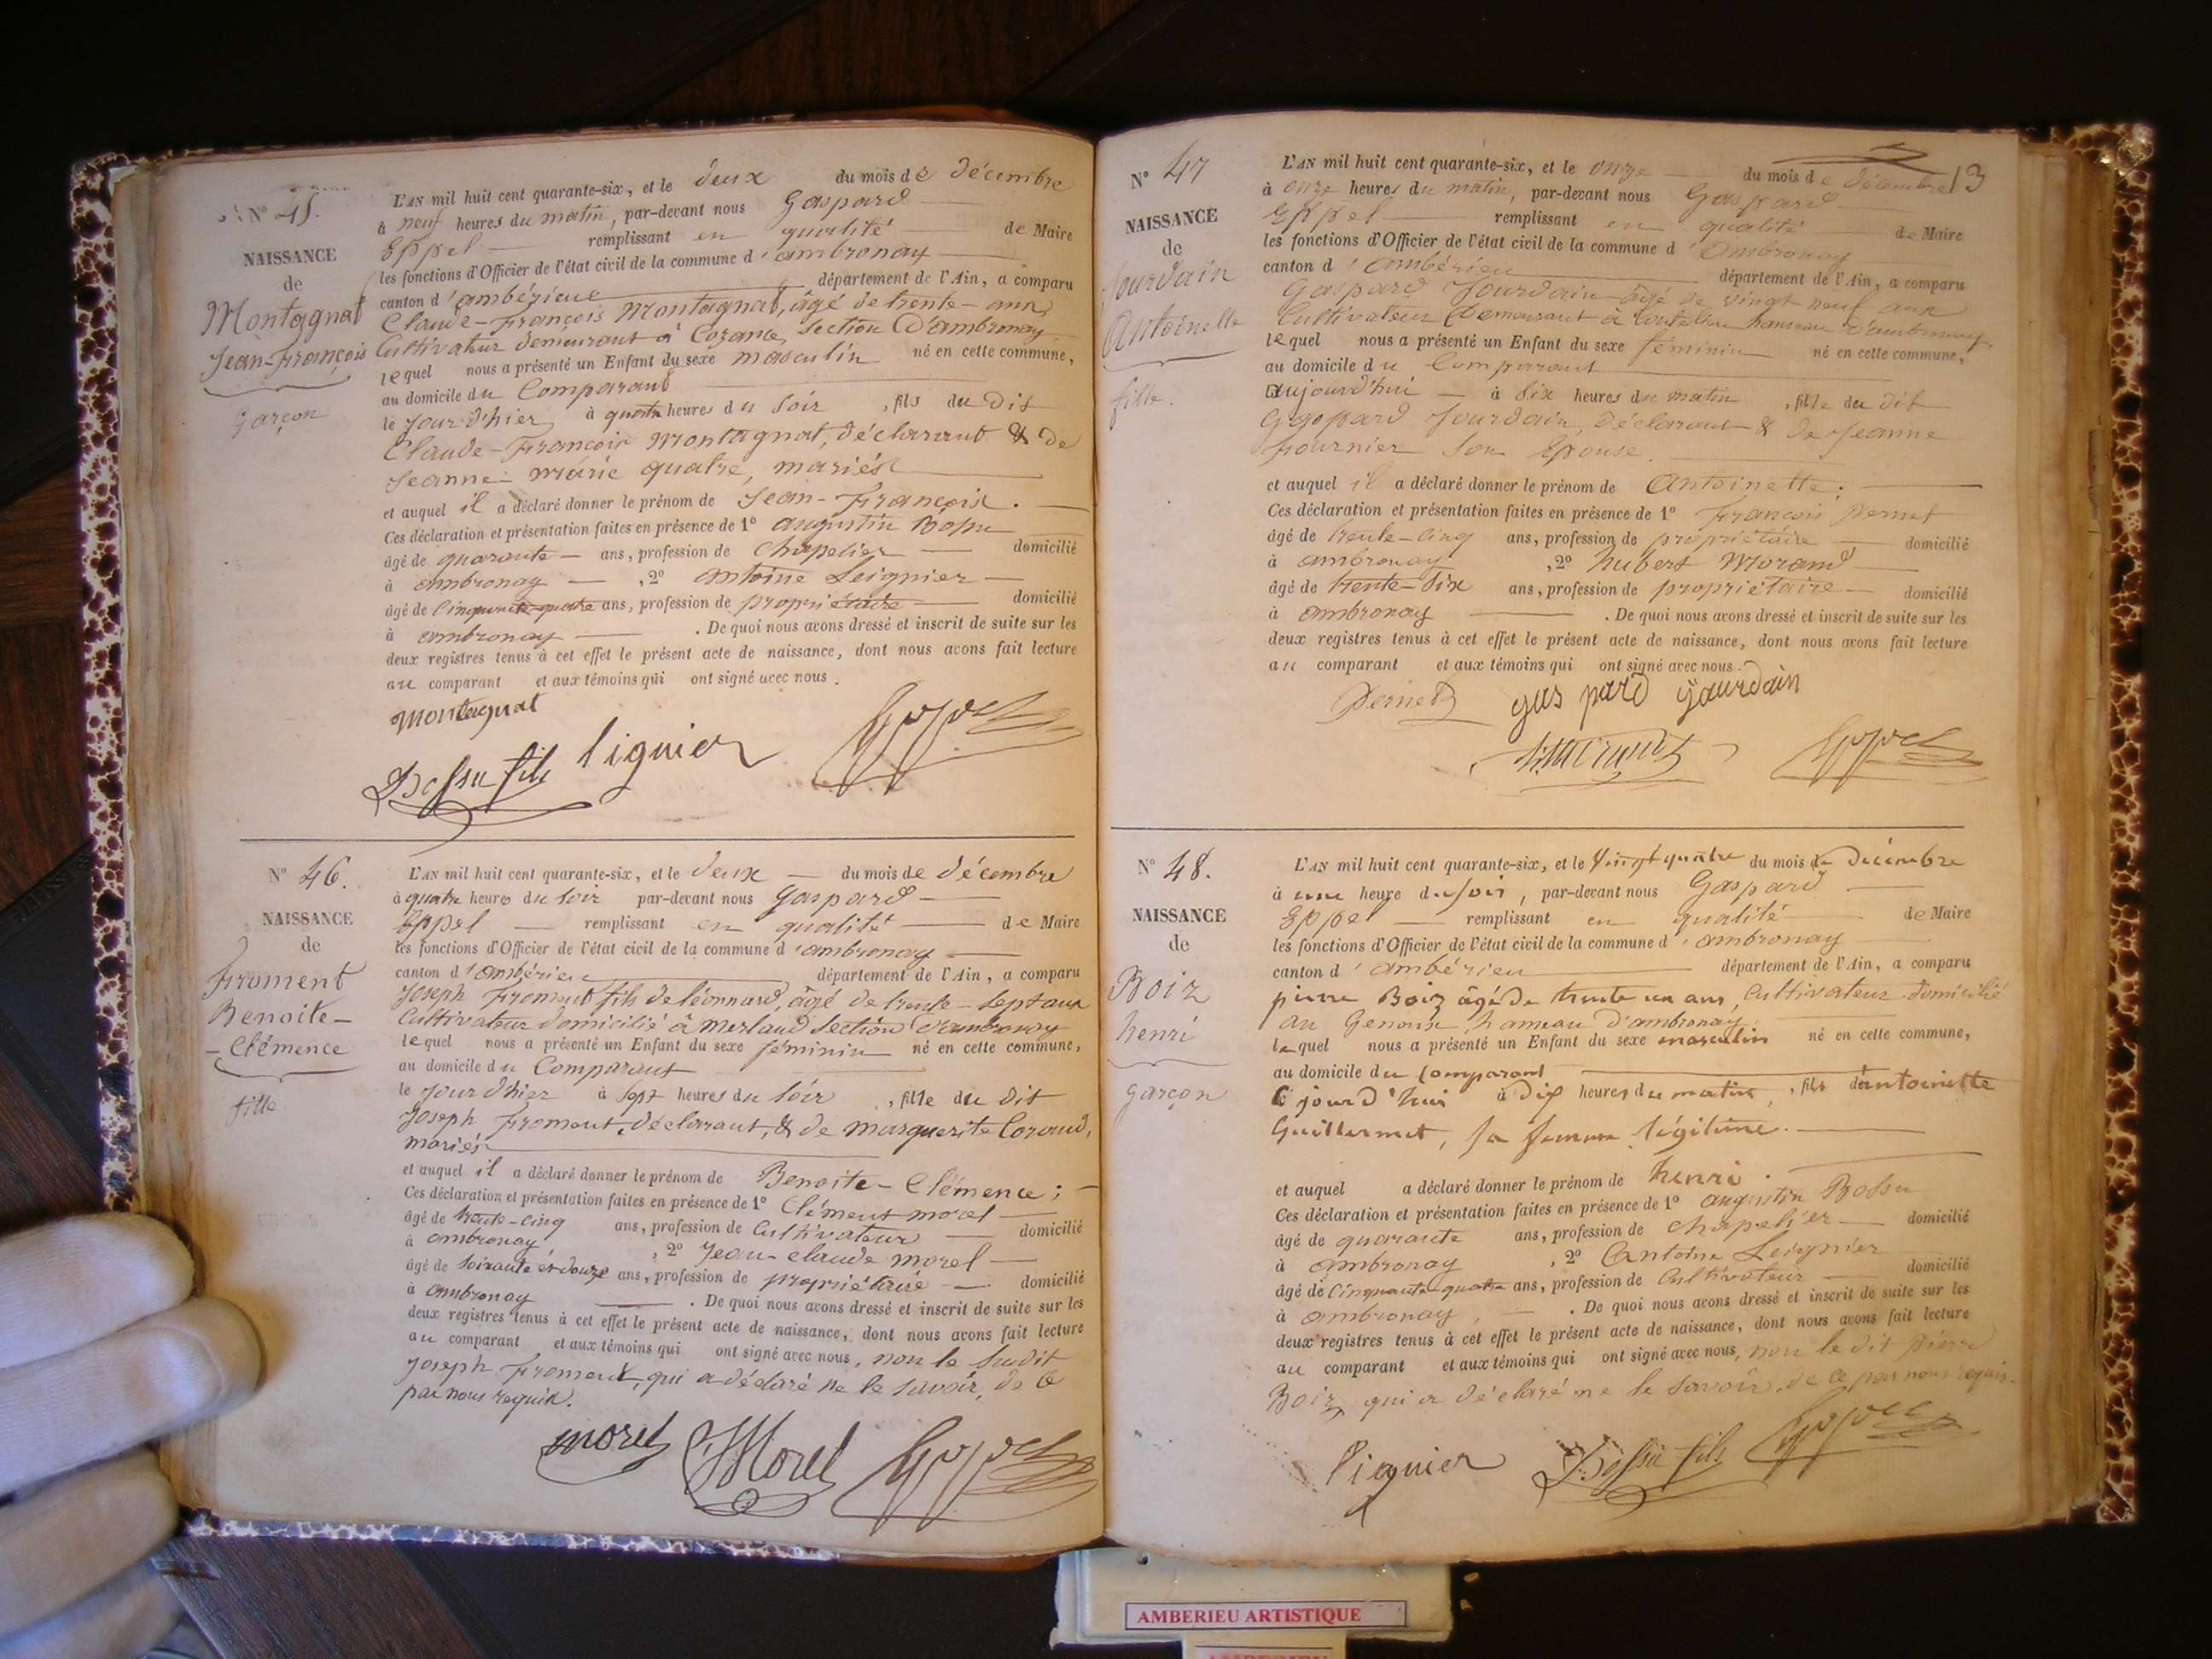 N° 45.
NAISSANCE
de
Montagnat
Jean-François
garçon
L'AN mil huit cent quarante-six, et le deux du mois de décembre
à neuf heures du matin, par-devant nous Gaspard
Eppel remplissant en qualité de Maire
les fonctions d'Officier de l'état civil de la commune d'ambronay
canton d'ambérieux département de l'Ain, a comparu
Claude-François Montagnat, âgé de trente ans,
Cultivateur demeurant à Cozance, section D'ambronay
lequel nous a présenté un Enfant du sexe masculin né en cette commune,
au domicile du Comparant
le jour d'hier à quatre heures du soir, fils du dit
Claude-François Montagnat, déclarant & de
Jeanne-marie quatre, mariés
et auquel il a déclaré donner le prénom de Jean-François.
Ces déclaration et présentation faites en présence de 1° augustin Bossu
âgé de quarante ans, profession de Chapelier domicilié
à ambronay, 2° antoine Leignier
âgé de Cinquante-quatre ans, profession de propriétaire domicilié
à ambronay. De quoi nous avons dressé et inscrit de suite sur les
deux registres tenus à cet effet le présent acte de naissance, dont nous avons fait lecture
au comparant et aux témoins qui ont signé avec nous.
montagnat
Bossu fils liguier Eppel
N° 46.
NAISSANCE
de
Froment
Benoite-
-Clémence
fille
L'AN mil huit cent quarante-six, et le deux du mois de décembre
à quatre heures du soir par-devant nous Gaspard
Eppel remplissant en qualité de Maire
les fonctions d'Officier de l'état civil de la commune d'ambronay
canton d'ambérieu département de l'Ain, a comparu
Joseph Froment fils de léonnard, âgé de trente-sept ans
Cultivateur domicilié à merland section d'ambronay
lequel nous a présenté un Enfant du sexe féminin né en cette commune,
au domicile du Comparant
le jour d'hier à sept heures du soir, fille du dit
Joseph Froment, déclarant, & de marguerite Cozand,
mariés
et auquel il a déclaré donner le prénom de Benoite-Clémence;
Ces déclaration et présentation faites en présence de 1° Clément morel
âgé de trente-cinq ans, profession de Cultivateur domicilié
à ambronay, 2° Jean-claude morel
âgé de soixante et douze ans, profession de propriétaire domicilié
à ambronay. De quoi nous avons dressé et inscrit de suite sur les
deux registres tenus à cet effet le présent acte de naissance, dont nous avons fait lecture
au comparant et aux témoins qui ont signé avec nous, non le susdit
Joseph Froment, qui a déclaré ne le savoir, de ce
par nous requis.
morel Morel Eppel
13
N° 47
NAISSANCE
de
Jourdain
Antoinette
fille.
L'AN mil huit cent quarante-six, et le onze du mois de décembre
à onze heures du matin, par-devant nous Gaspard
Eppel remplissant en qualité de Maire
les fonctions d'Officier de l'état civil de la commune d'Ambronay
canton d'ambérieu département de l'Ain, a comparu
Gaspard Jourdain âgé de vingt neuf ans
Cultivateur Demeurant à hameau d'ambronay,
lequel nous a présenté un Enfant du sexe féminin né en cette commune,
au domicile du Comparant
aujourd'hui à six heures du matin, fille du dit
Gaspard Jourdain, déclarant & de Jeanne
fournier son Epouse.
et auquel il a déclaré donner le prénom de Antoinette;
Ces déclaration et présentation faites en présence de 1° François Pernet
âgé de trente-cinq ans, profession de propriétaire domicilié
à ambronay, 2° hubert Morand
âgé de trente-six ans, profession de propriétaire domicilié
à ambronay. De quoi nous avons dressé et inscrit de suite sur les
deux registres tenus à cet effet le présent acte de naissance, dont nous avons fait lecture
au comparant et aux témoins qui ont signé avec nous.
Pernet gaspard jourdain
Eppel
N° 48.
NAISSANCE
de
Boiz
henri
garçon
L'AN mil huit cent quarante-six, et le Vingt quatre du mois de décembre
à une heure du soir, par-devant nous Gaspard
Eppel remplissant en qualité de Maire
les fonctions d'Officier de l'état civil de la commune d'ambronay
canton d'ambérieu département de l'Ain, a comparu
pierre Boiz âgé de trente un ans, Cultivateur domicilié
au Genoux hameau d'ambronay
lequel nous a présenté un Enfant du sexe masculin né en cette commune,
au domicile du Comparant
Ce jourd'hui à dix heures du matin, fils d'antoinette
Guillermet, sa femme légitime.
et auquel a déclaré donner le prénom de henri.
Ces déclaration et présentation faites en présence de 1° augustin Bossu
âgé de quarante ans, profession de chapelier domicilié
à ambronay, 2° Antoine Leignier
âgé de Cinquante-quatre ans, profession de Cultivateur domicilié
à ambronay, . De quoi nous avons dressé et inscrit de suite sur les
deux registres tenus à cet effet le présent acte de naissance, dont nous avons fait lecture
au comparant et aux témoins qui ont signé avec nous, non le dit Pierre
Boiz, qui a déclaré ne le savoir, de ce par nous requis.
liguier Bossu fils Eppel
AMBERIEU ARTISTIQUE